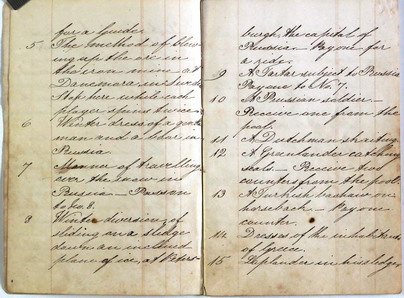 for a Guide.
5 The method of blow-
ing up the ore in
the iron mine at
Danemora in Sweden
Stop here while each
player spins twice
6 Winter dress of a gentle
man and a boor in
Russia
7 Manner of travelling
over the snow in
Russia — Pass on
to No. 8.
8 Winter diversion of
sliding on a sledge
down an inclined
plane of ice, at Peters-
burgh, the capital of
Russia. Pay one for
a ride.
9 A Tartar subject to Russia
Pay one to No. 7.
10 A Prussian soldier —
Receive one from the
pool.
11 A Dutchman skaiting
12 A Greenlander catching
seals. — Receive two
counters from the pool.
13 A Turkish bashaw on
horseback — Pay one
counter.
14 Dresses of the inhabitants
of Greece.
15 Laplander in his sledge,